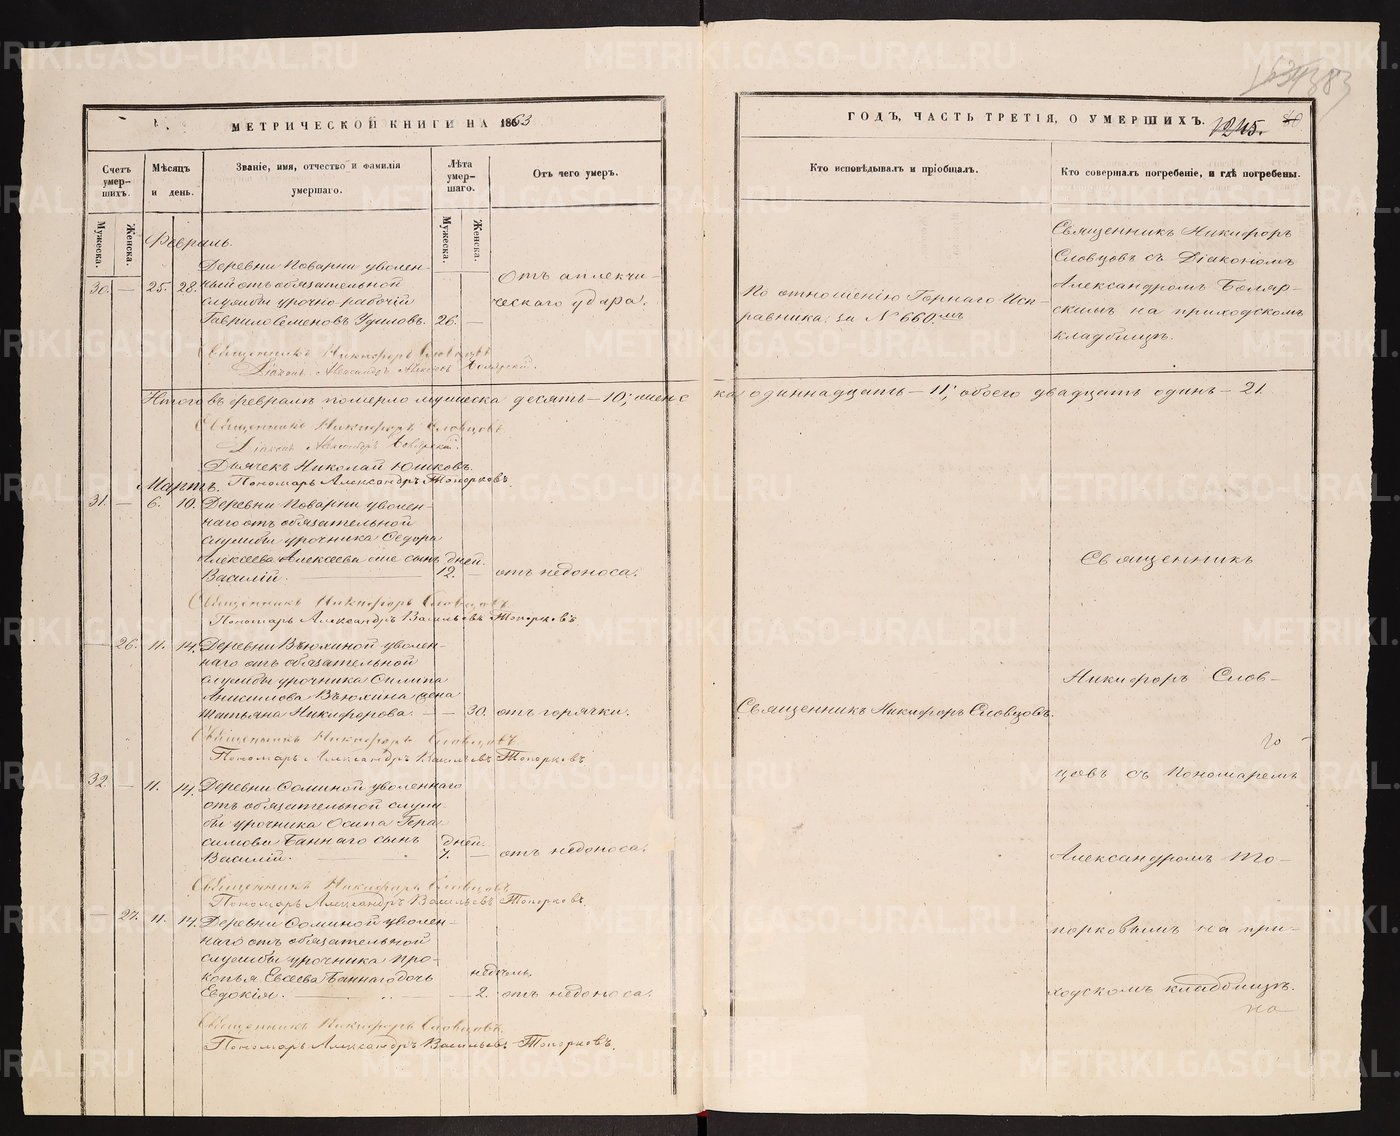 МЕТРИЧЕСКОЙ КНИГИ НА 1863
Счетъ умершихъ.
Мужеска.
Женска.
Мѣсяцъ и день.
Званіе, имя, отчество и фамилія умершаго.
Лѣта умершаго.
Мужеска.
Женска.
Отъ чего умеръ.
Февраль.
30. — 25. 28.
Деревни Поварни уволен-
ный отъ обязательной
службы урочно рабочій
Гаврило Семеновъ Удиловъ. 26. —
Отъ аплекчи-
ческаго удара.
Священникъ Никифоръ Словцовъ
Діаконъ Александръ Алексѣевъ Болярскій.
Итого въ февралѣ померло мужеска десять — 10; женс
Священникъ Никифоръ Словцовъ
Діаконъ Александръ Болярскій.
Дьячекъ Николай Юшковъ.
Пономарь Александръ Топорковъ
Мартъ.
31. — 6. 10. Деревни Поварни уволен-
наго отъ обязательной
службы урочника Ѳедора
Алексѣева Алексѣева же сынъ дней.
Василій. 12. — отъ недоноса.
Священникъ Никифоръ Словцовъ
Пономарь Александръ Васильевъ Топорковъ
— 26. 11. 14. Деревни Вьюхиной уволен-
наго отъ обязательной
службы урочника Филипа
Аникимова Вьюхина жена
Татьяна Никифорова. — — 30. отъ горячки.
Священникъ Никифоръ Словцовъ
Пономарь Александръ Васильевъ Топорковъ
32. — 11. 14. Деревни Соминой уволеннаго
отъ обязательной служ
бы урочника Осипа Гера
симова Баннаго сынъ дней.
Василій. 7. — отъ недоноса.
Священникъ Никифоръ Словцовъ
Пономарь Александръ Васильевъ Топорковъ.
— 27. 11. 14. Деревни Соминой уволен-
наго отъ обязательной
службы урочника Про-
копья Евсѣева Баннаго дочь недѣль.
Евдокія. — 2. отъ недоноса.
Священникъ Никифоръ Словцовъ.
Пономарь Александръ Васильевъ Топорковъ.
383
ГОДЪ, ЧАСТЬ ТРЕТІЯ, О УМЕРШИХЪ.
1245.
Кто исповѣдывалъ и пріобщалъ.
Кто совершалъ погребеніе, и гдѣ погребены.
По отношенію Горнаго Исп-
равника: за № 660.мъ
Священникъ Никифоръ
Словцовъ съ Діакономъ
Александромъ Боляр-
скимъ на приходскомъ
кладбищѣ.
ка одиннадцать — 11; обоего двадцать одинъ — 21.
Священникъ Никифоръ Словцовъ.
Священникъ
Никифоръ Слов-
цовъ съ Пономаремъ
Александромъ То-
порковымъ на при-
ходскомъ кладбищѣ.
METRIKI.GASO-URAL.RU